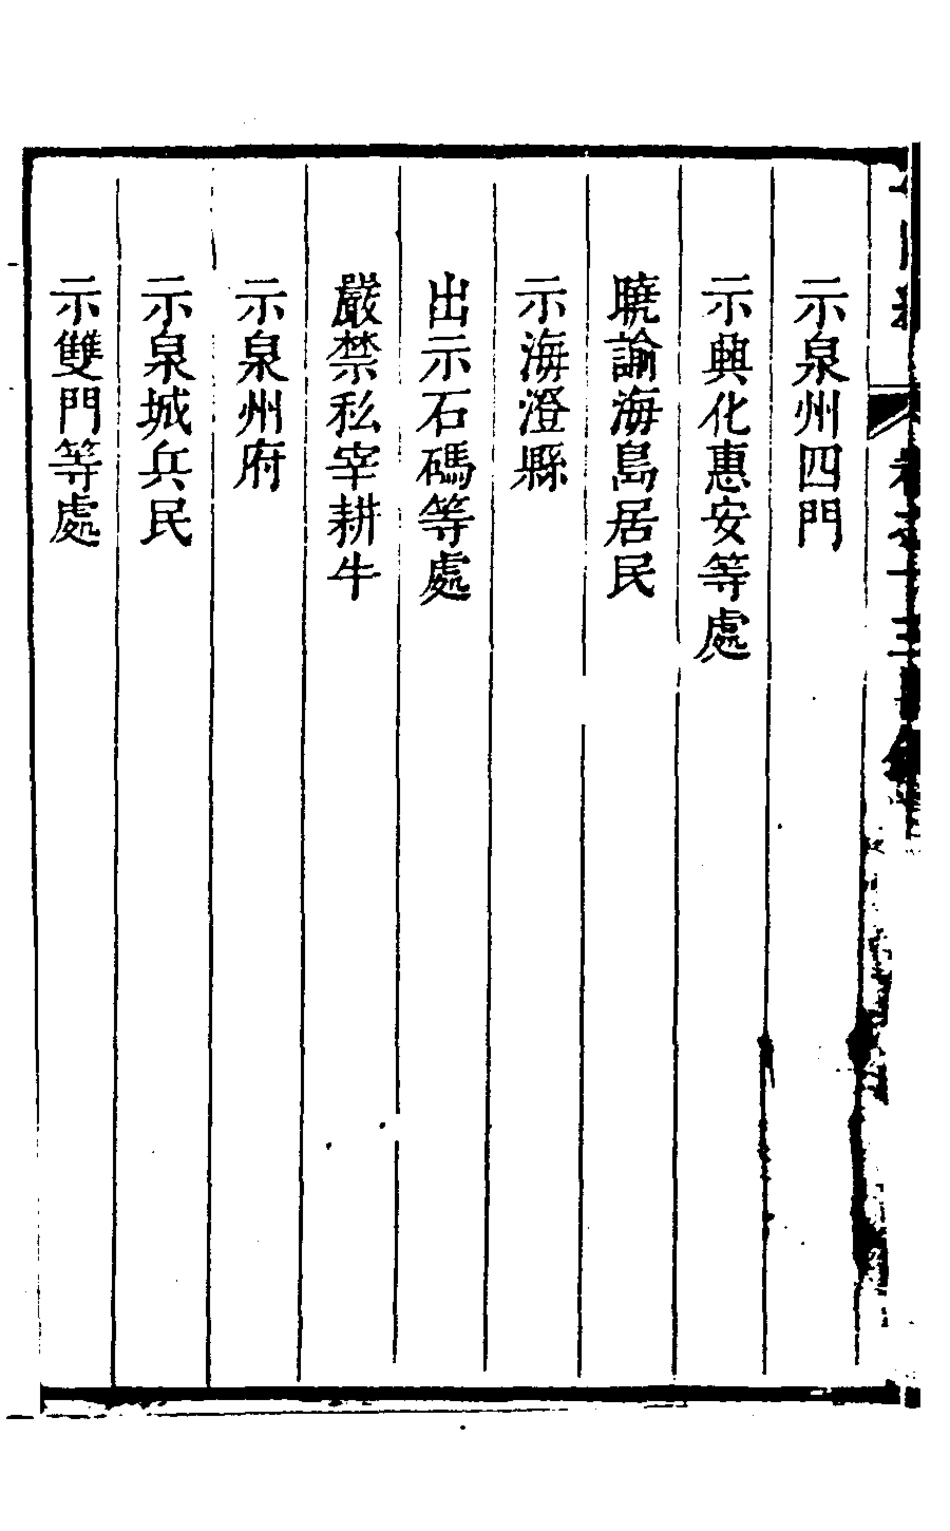 示泉州四門
示興化惠安等處
曉諭海島居民
示海澄縣
出示石碼等處
嚴禁私宰耕牛
示泉州府
示泉城兵民
示雙門等處